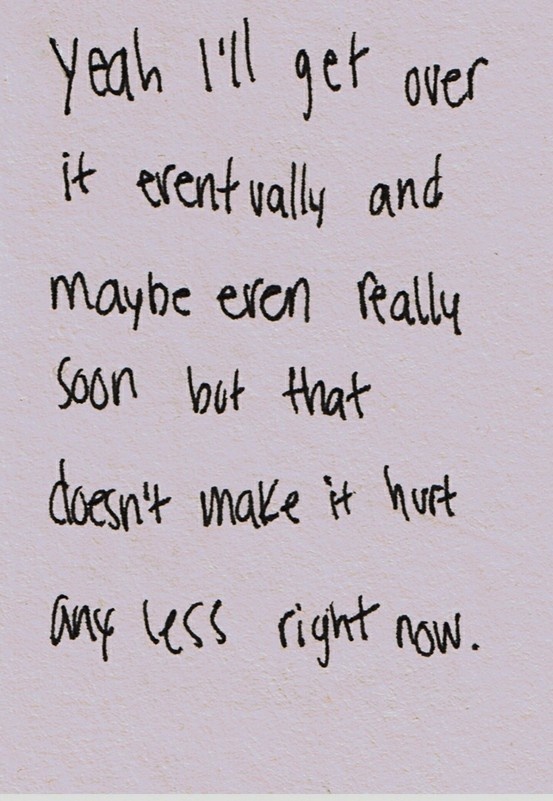 Yeah I'll get over
it eventually and
maybe even really
soon but that
doesn't make it hurt
any less right now.